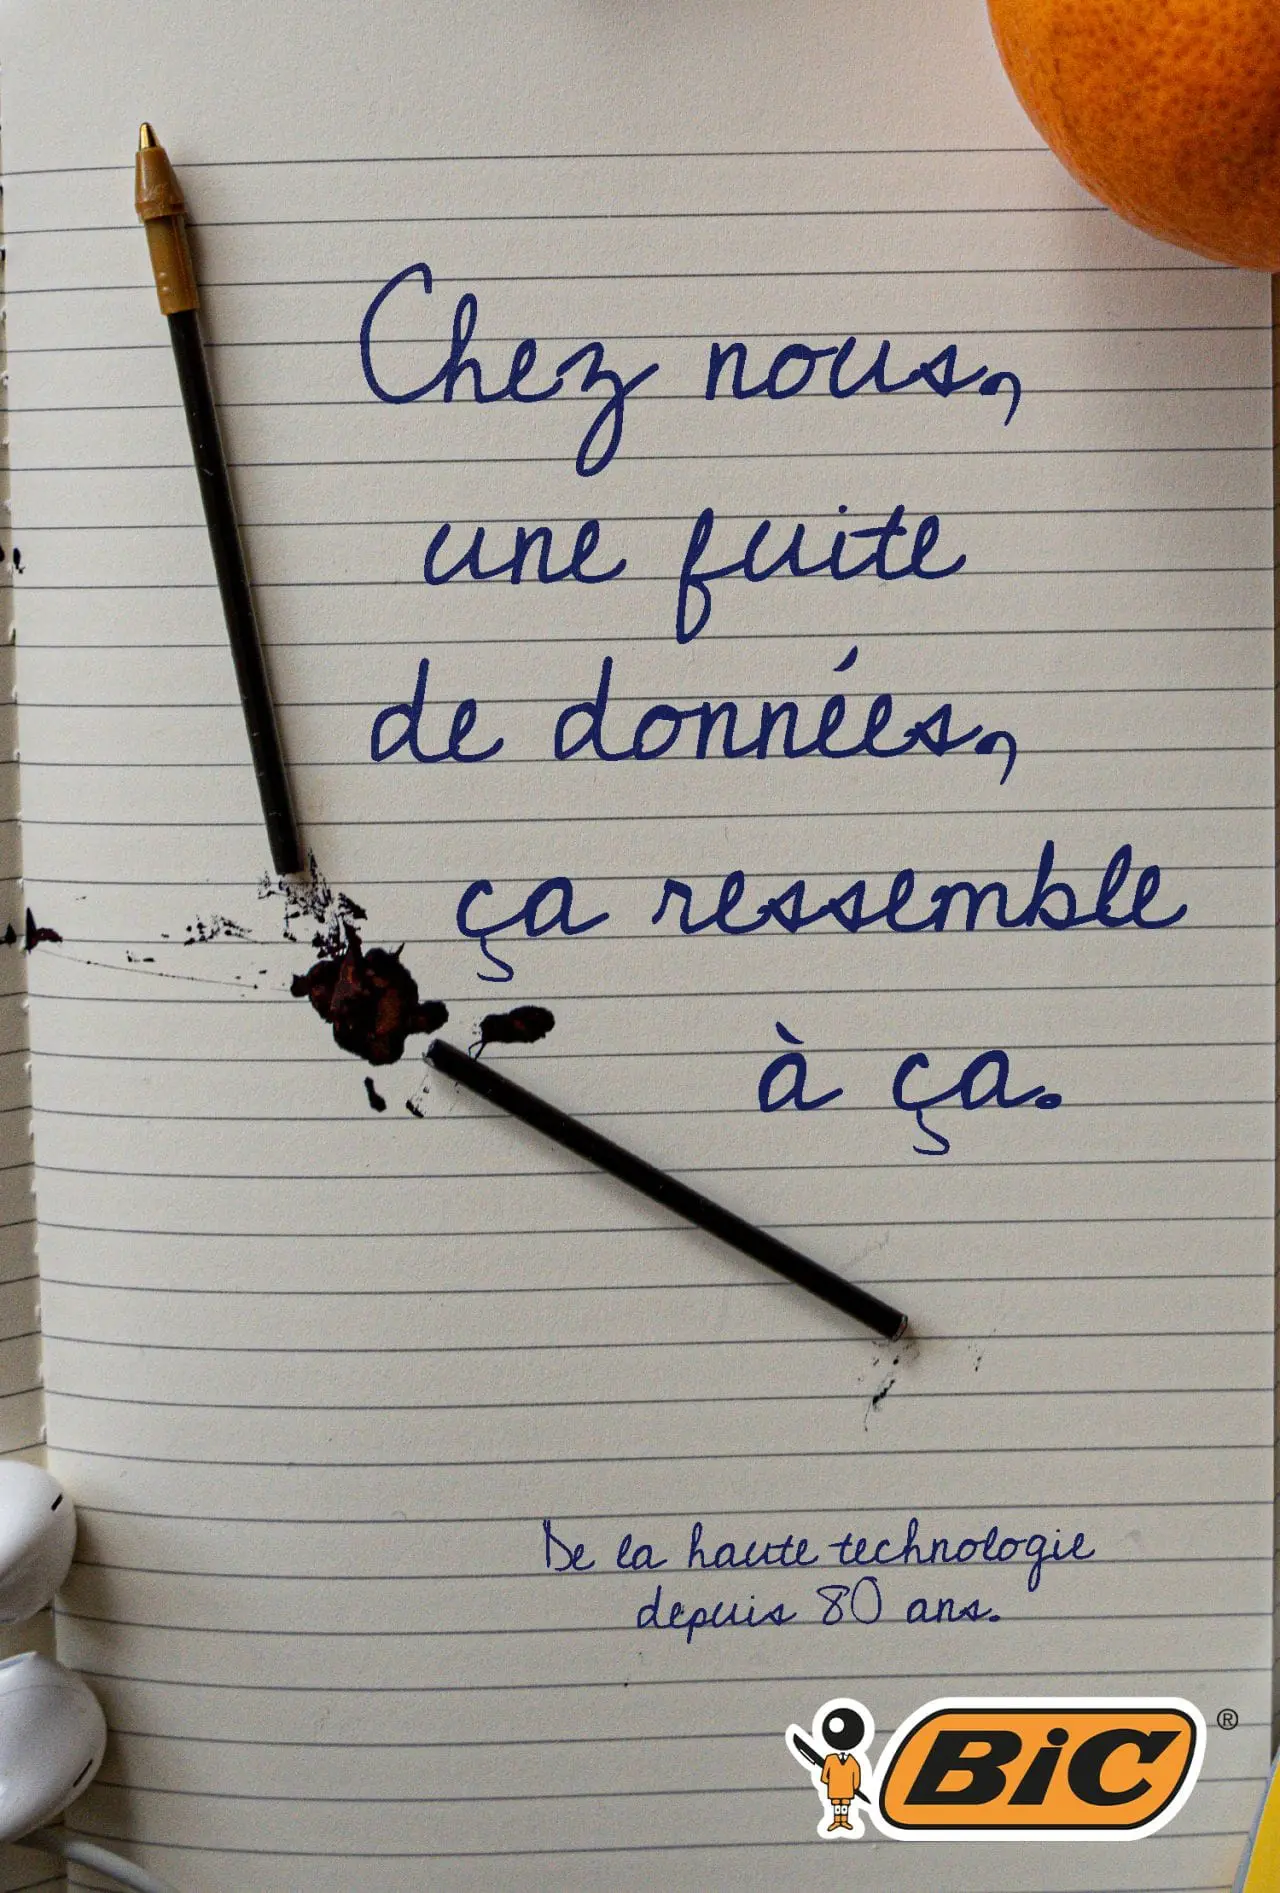 Chez nous,
une fuite
de données,
ça ressemble
à ça.
De la haute technologie
depuis 80 ans.
BiC®